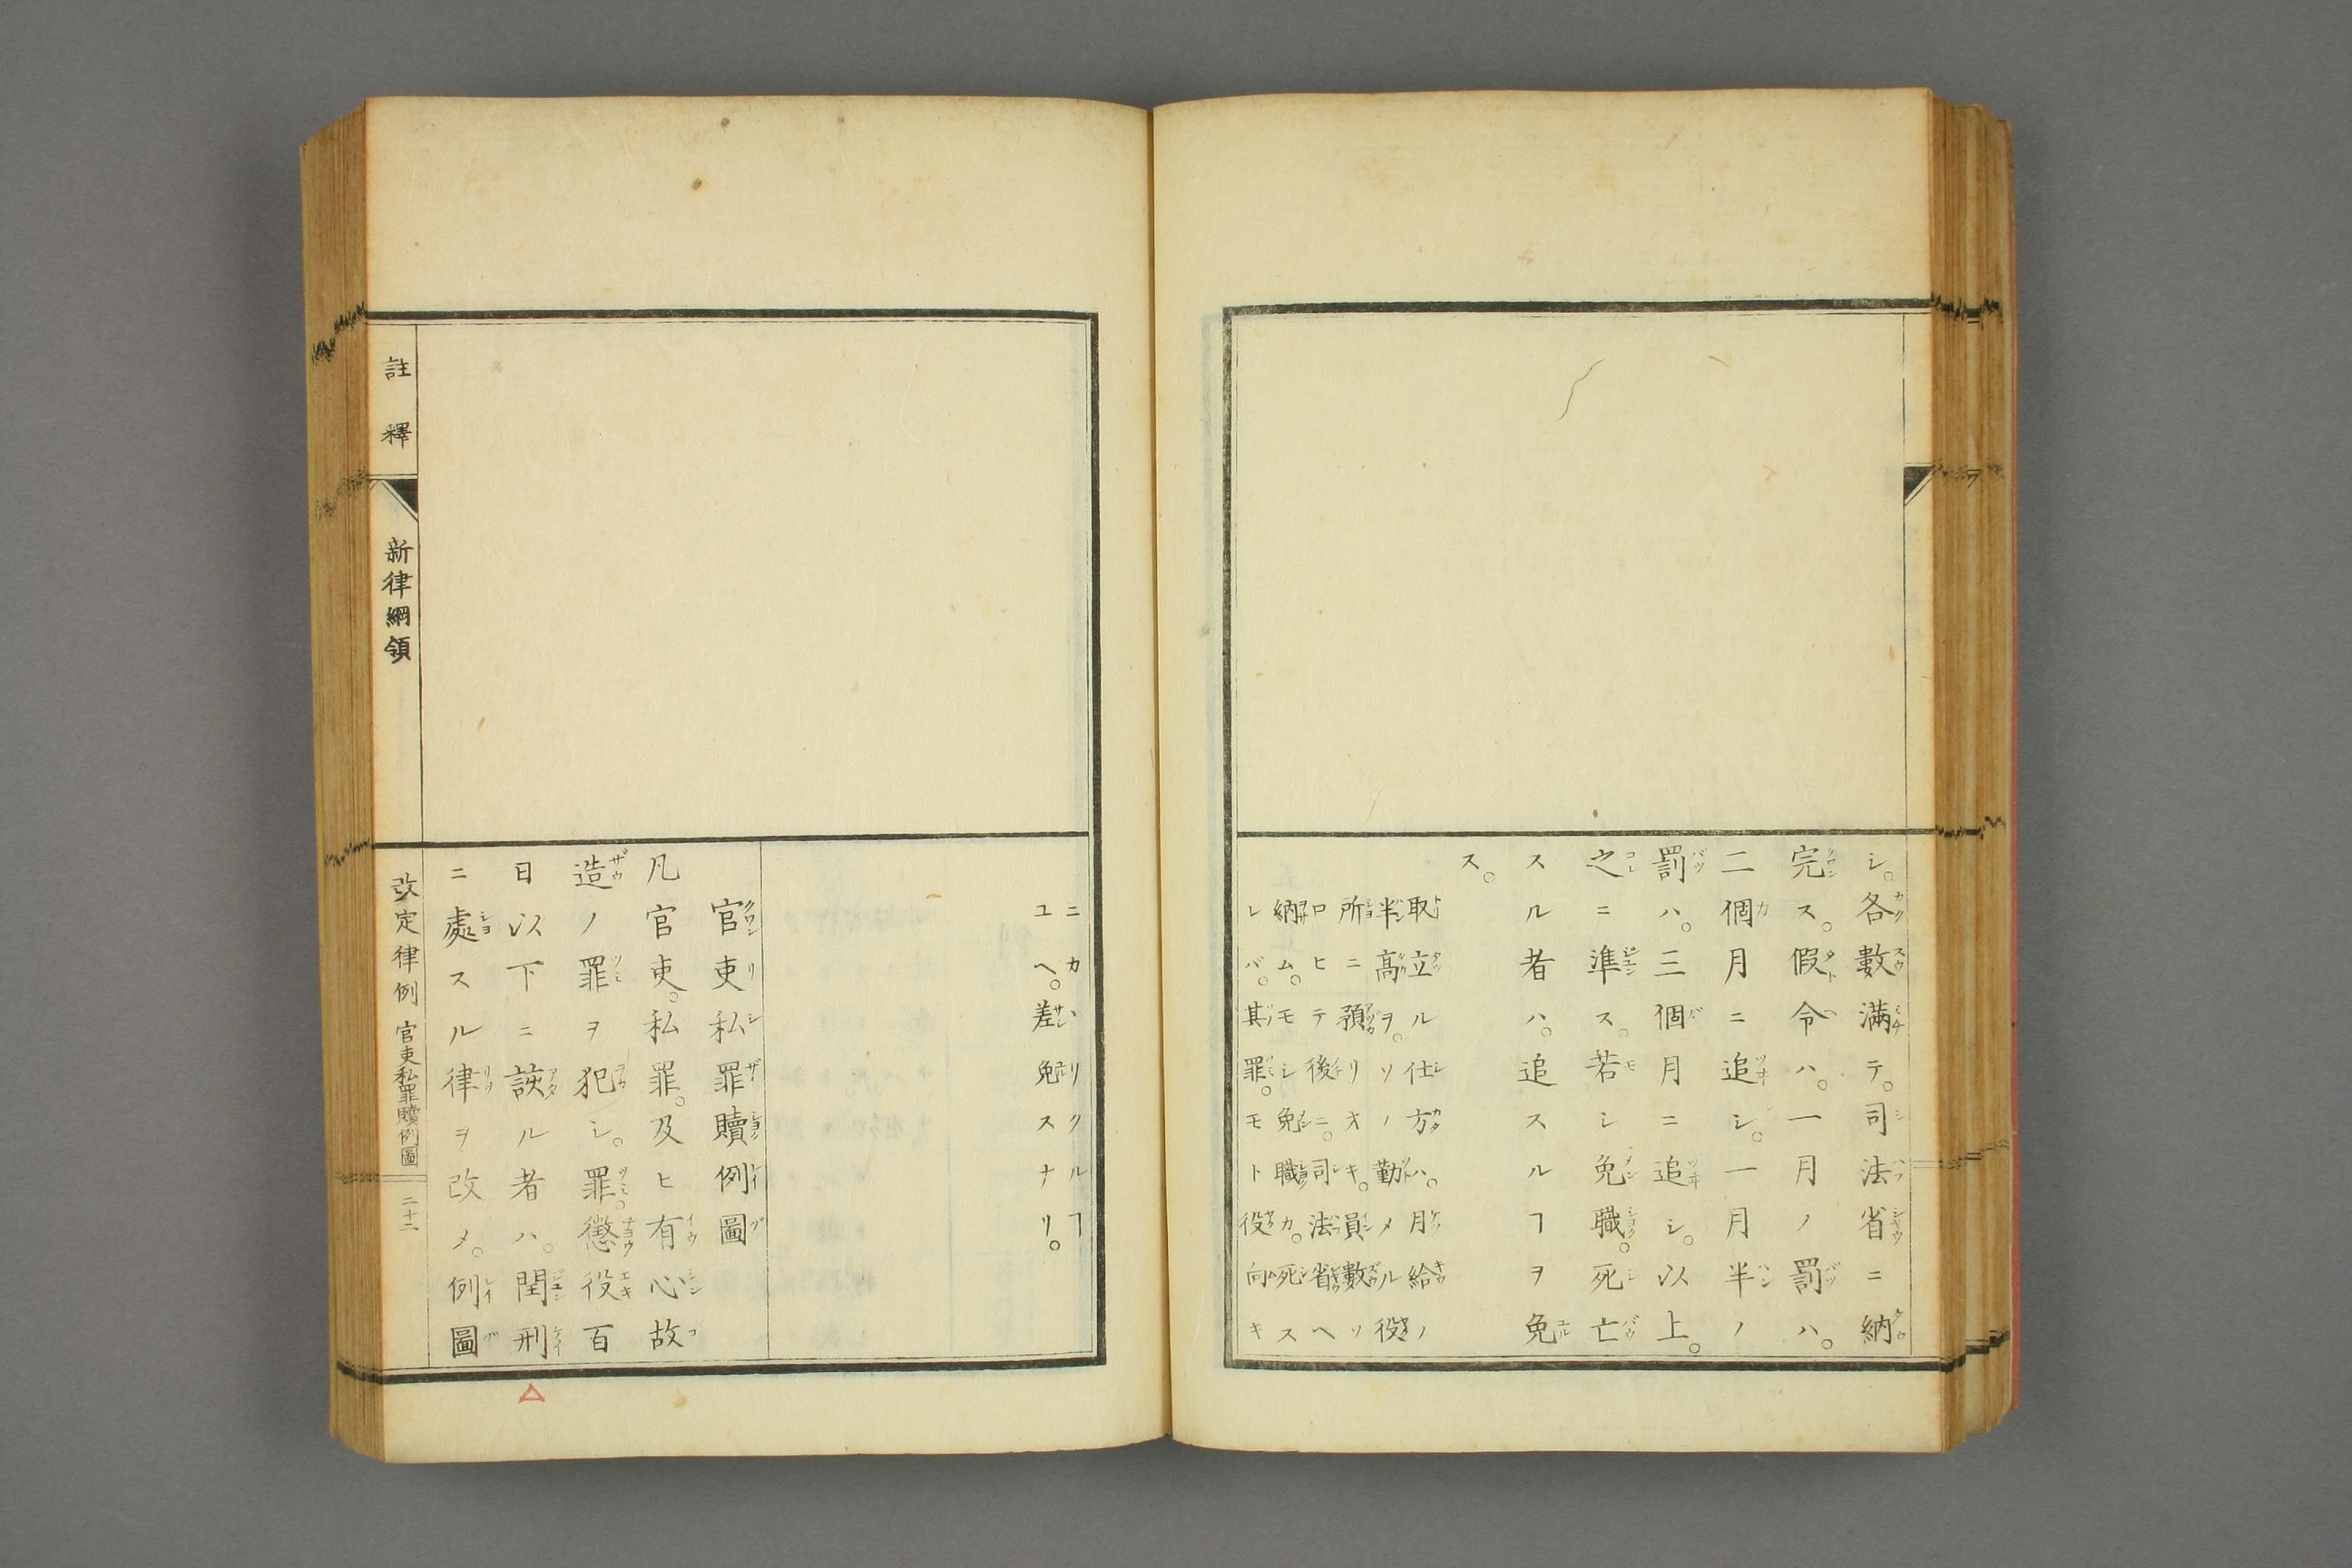 シ。各數滿テ。司法省ニ納
完ス。假令ハ。一月ノ罰ハ。
二個月ニ追シ。一月半ノ
罰ハ。三個月ニ追シ。以上。
之ニ準ス。若シ免職。死亡
スル者ハ。追スルヿヲ免
ス。
取立ル仕方ハ。月給ノ
半高ヲ。ソノ勤メル役
所ニ預リオキ。員數ソ
ロヒテ後ニ。司法省ヘ
納ム。モシ免職カ。死ス
レバ。其罪。モト役向キ
ニカハリクルヿ
ユヘ。差免スナリ。
官吏私罪贖例圖
凡官吏。私罪。及ヒ有心故
造ノ罪ヲ犯シ。罪。懲役百
日以下ニ該ル者ハ。閏刑
ニ處スル律ヲ改メ。例圖
註釋
新律綱領
改定律例 官吏私罪贖例圖
二十二